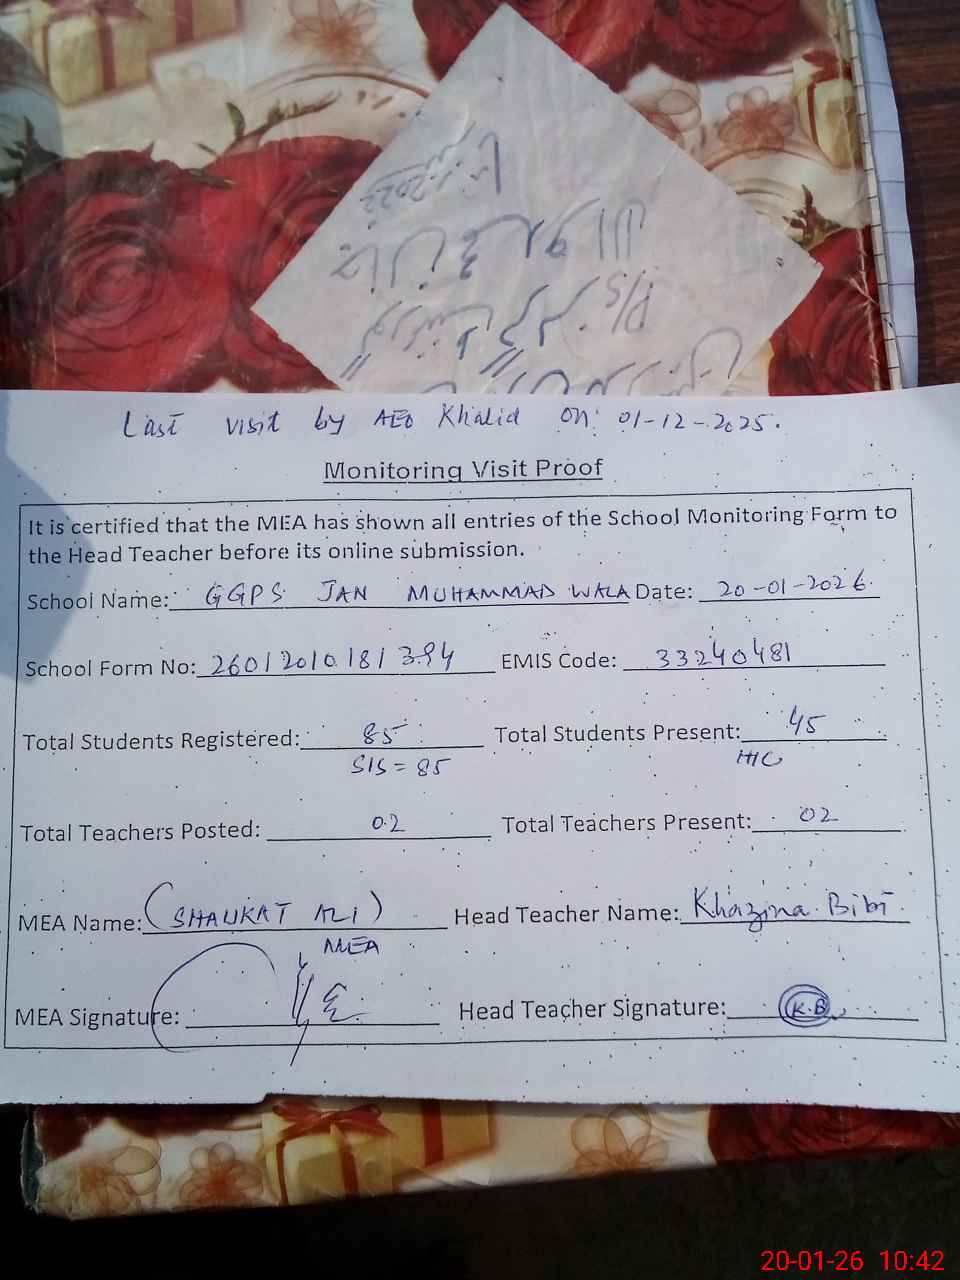 2023
P/S
Last visit by AEO Khalid on: 01-12-2025.
Monitoring Visit Proof
It is certified that the MEA has shown all entries of the School Monitoring Form to
the Head Teacher before its online submission.
School Name: GGPS JAN MUHAMMAD WALA Date: 20-01-2026
School Form No: EMIS Code: 33240481
Total Students Registered: 85 Total Students Present: 45
SIS = 85
Total Teachers Posted: 02 Total Teachers Present: 02
MEA Name: (SHAUKAT ALI) Head Teacher Name: Khazina Bibi
MEA
MEA Signature: Head Teacher Signature: K.B
20-01-26 10:42